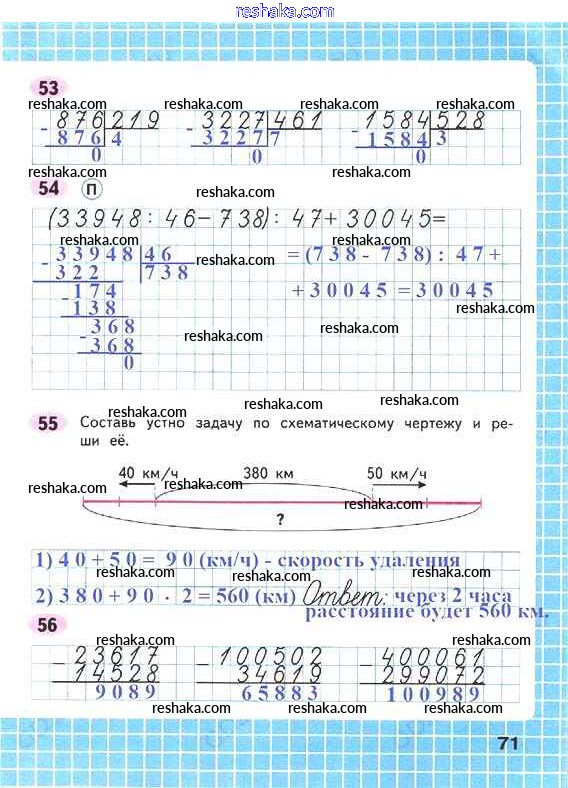 reshaka.com
53
reshaka.com reshaka.com reshaka.com reshaka.com
- 876 219 - 3227 461 - 1584 528
876 4 3227 7 1584 3
0 0 0
reshaka.com reshaka.com
54 П reshaka.com
(33948 : 46 - 738) : 47 + 30045 =
reshaka.com
- 33948 46 = (738 - 738) : 47 +
322 738 reshaka.com reshaka.com
- 174 + 30045 = 30045
138 reshaka.com
- 368 reshaka.com
368
0
reshaka.com
reshaka.com
reshaka.com
55 Составь устно задачу по схематическому чертежу и ре-
ши её.
reshaka.com
reshaka.com
40 км/ч 380 км 50 км/ч
reshaka.com
reshaka.com
?
reshaka.com
1) 40 + 50 = 90 (км/ч) - скорость удаления
reshaka.com reshaka.com
2) 380 + 90 · 2 = 560 (км) Ответ: через 2 часа
reshaka.com расстояние будет 560 км.
56
reshaka.com reshaka.com reshaka.com
- 23617 - 100502 - 400061
14528 34619 299072
9089 65883 100989
reshaka.com reshaka.com reshaka.com
71